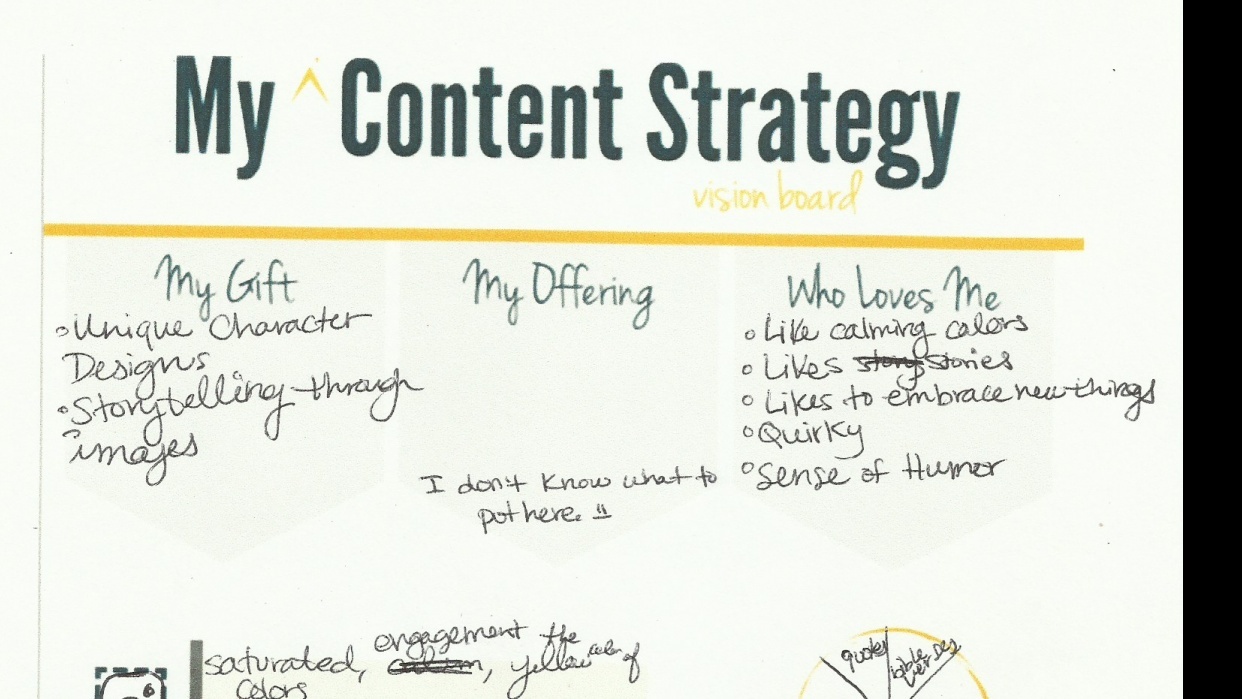 My ^ Content Strategy
vision board
My Gift
◦Unique Character
Designs
◦Storytelling through
images
My Offering
I don't know what to
put here. !!
Who Loves Me
◦Like calming colors
◦Likes story stories
◦Likes to embrace new things
◦Quirky
◦Sense of Humor
engagement the
saturated, yellow color of
colors
quotes
bible verses